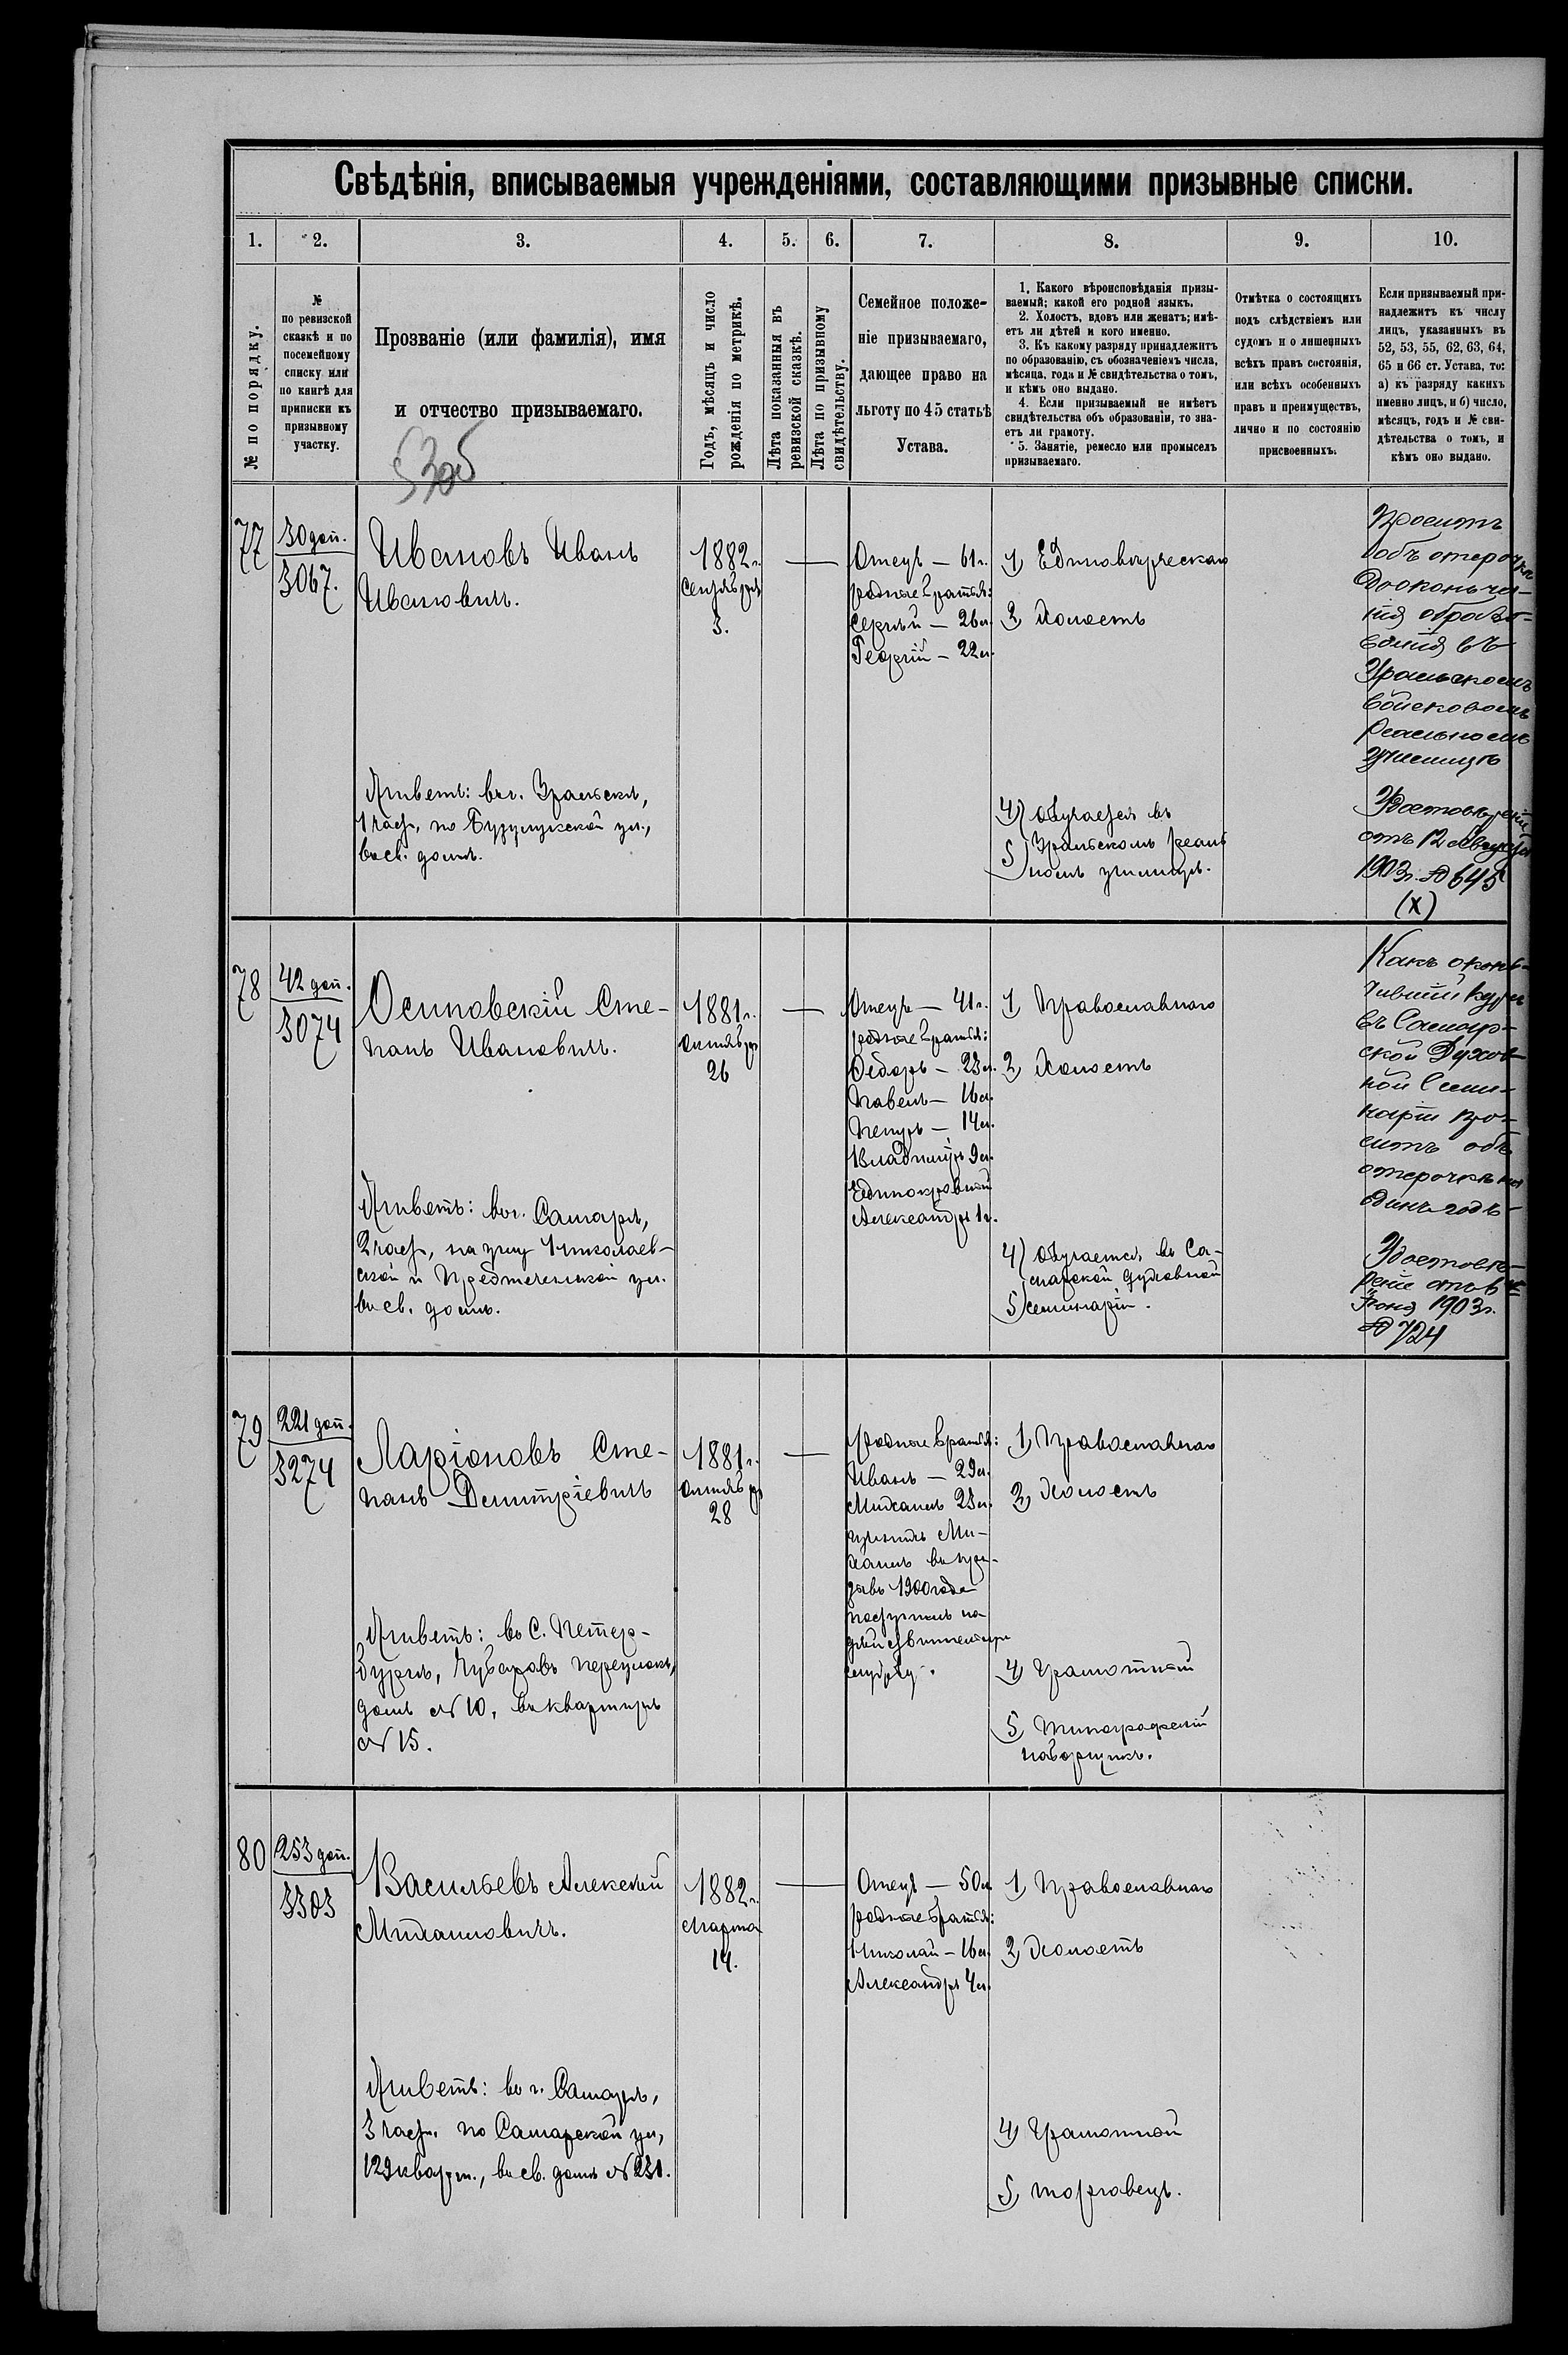 Свѣдѣнія, вписываемыя учрежденіями, составляющими призывные списки.
1.
2.
3.
4.
5.
6.
7.
8.
9.
10.
№ по порядку.
№
по ревизской
сказкѣ и по
посемейному
списку или
по книгѣ для
приписки къ
призывному
участку.
Прозваніе (или фамилія), имя
и отчество призываемаго.
Годъ, мѣсяцъ и число
рожденія по метрикѣ.
Лѣта показанныя въ
ревизской сказкѣ.
Лѣта по призывному
свидѣтельству.
Семейное положе-
ніе призываемаго,
дающее право на
льготу по 45 статьѣ
Устава.
1. Какого вѣроисповѣданія призы-
ваемый; какой его родной языкъ.
2. Холостъ, вдовъ или женатъ; имѣ-
етъ ли дѣтей и кого именно.
3. Къ какому разряду принадлежитъ
по образованію, съ обозначеніемъ числа,
мѣсяца, года и № свидѣтельства о томъ,
и кѣмъ оно выдано.
4. Если призываемый не имѣетъ
свидѣтельства объ образованіи, то зна-
етъ ли грамоту.
5. Занятіе, ремесло или промыселъ
призываемаго.
Отмѣтка о состоящихъ
подъ слѣдствіемъ или
судомъ и о лишенныхъ
всѣхъ правъ состоянія,
или всѣхъ особенныхъ
правъ и преимуществъ,
лично и по состоянію
присвоенныхъ.
Если призываемый при-
надлежитъ къ числу
лицъ, указанныхъ въ
52, 53, 55, 62, 63, 64,
65 и 66 ст. Устава, то:
а) къ разряду какихъ
именно лицъ, и б) число,
мѣсяцъ, годъ и № сви-
дѣтельства о томъ, и
кѣмъ оно выдано.
77
30 доп.
3067.
Ивановъ Иванъ
Ивановичъ.
Живетъ: въ г. Уральскѣ,
1 част, по Бузулукской ул.,
въ св. домѣ.
1882 г.
Сентября
3.
Отецъ — 61 г.
родные братья:
Сергѣй — 26 л.
Георгій — 22 л.
1) Единовѣрческаго
2) Холостъ
4) Обучается въ
5) Уральскомъ реаль
номъ училищѣ.
Проситъ
объ отсрочкѣ
до оконча-
нія образо-
ванія въ
Уральскомъ
войсковомъ
реальномъ
училищѣ
Удостовѣреніе
отъ 12 Августа
1903 г. № 645
(х)
78
42 доп.
3074
Осиповскій Сте-
панъ Ивановичъ.
Живетъ: въ г. Самарѣ,
2 част, на углу Николаев-
ской и Предтеченской ул.
въ св. домѣ.
1881 г.
Октября
26
Отецъ — 41 г.
родные братья:
Ѳедоръ — 23 л.
Павелъ — 16 л.
Петръ — 14 л.
Владиміръ 9 л.
Единокровный
Александръ 1 г.
1) Православнаго
2) Холостъ
4) Обучается въ Са-
марской духовной
5) семинаріи.
Какъ окон-
чившій курсъ
въ Самар-
ской Духов
ной Семи-
наріи про-
ситъ объ
отсрочкѣ на
одинъ годъ
Удостовѣ-
реніе отъ
Іюня 1903 г.
№ 724
79
221 доп.
3274
Ларіоновъ Сте-
панъ Дмитріевичъ
Живетъ: въ С. Петер-
бургѣ, Чубаровъ переулокъ,
домъ № 10, въ квартирѣ
№ 15.
1881 г.
Октября
28
Родные братья:
Иванъ — 29 л.
Михаилъ 23 л.
изъ нихъ Ми-
хаилъ въ при-
зывъ 1900 года
поступилъ на
дѣйствительную
службу.
1) Православнаго
2) Холостъ
4) Грамотный
5) Типографскій
наборщикъ.
80
253 доп.
3303
Васильевъ Алексѣй
Михаиловичъ.
Живетъ: въ г. Самарѣ,
3 част. по Самарской ул,
129 кварт., въ св. домѣ № 231.
1882 г.
Марта
14.
Отецъ — 50 л.
родные братья:
Николай — 16 л.
Александръ 4 л.
1) Православнаго
2) Холостъ
4) Грамотной
5) торговецъ.